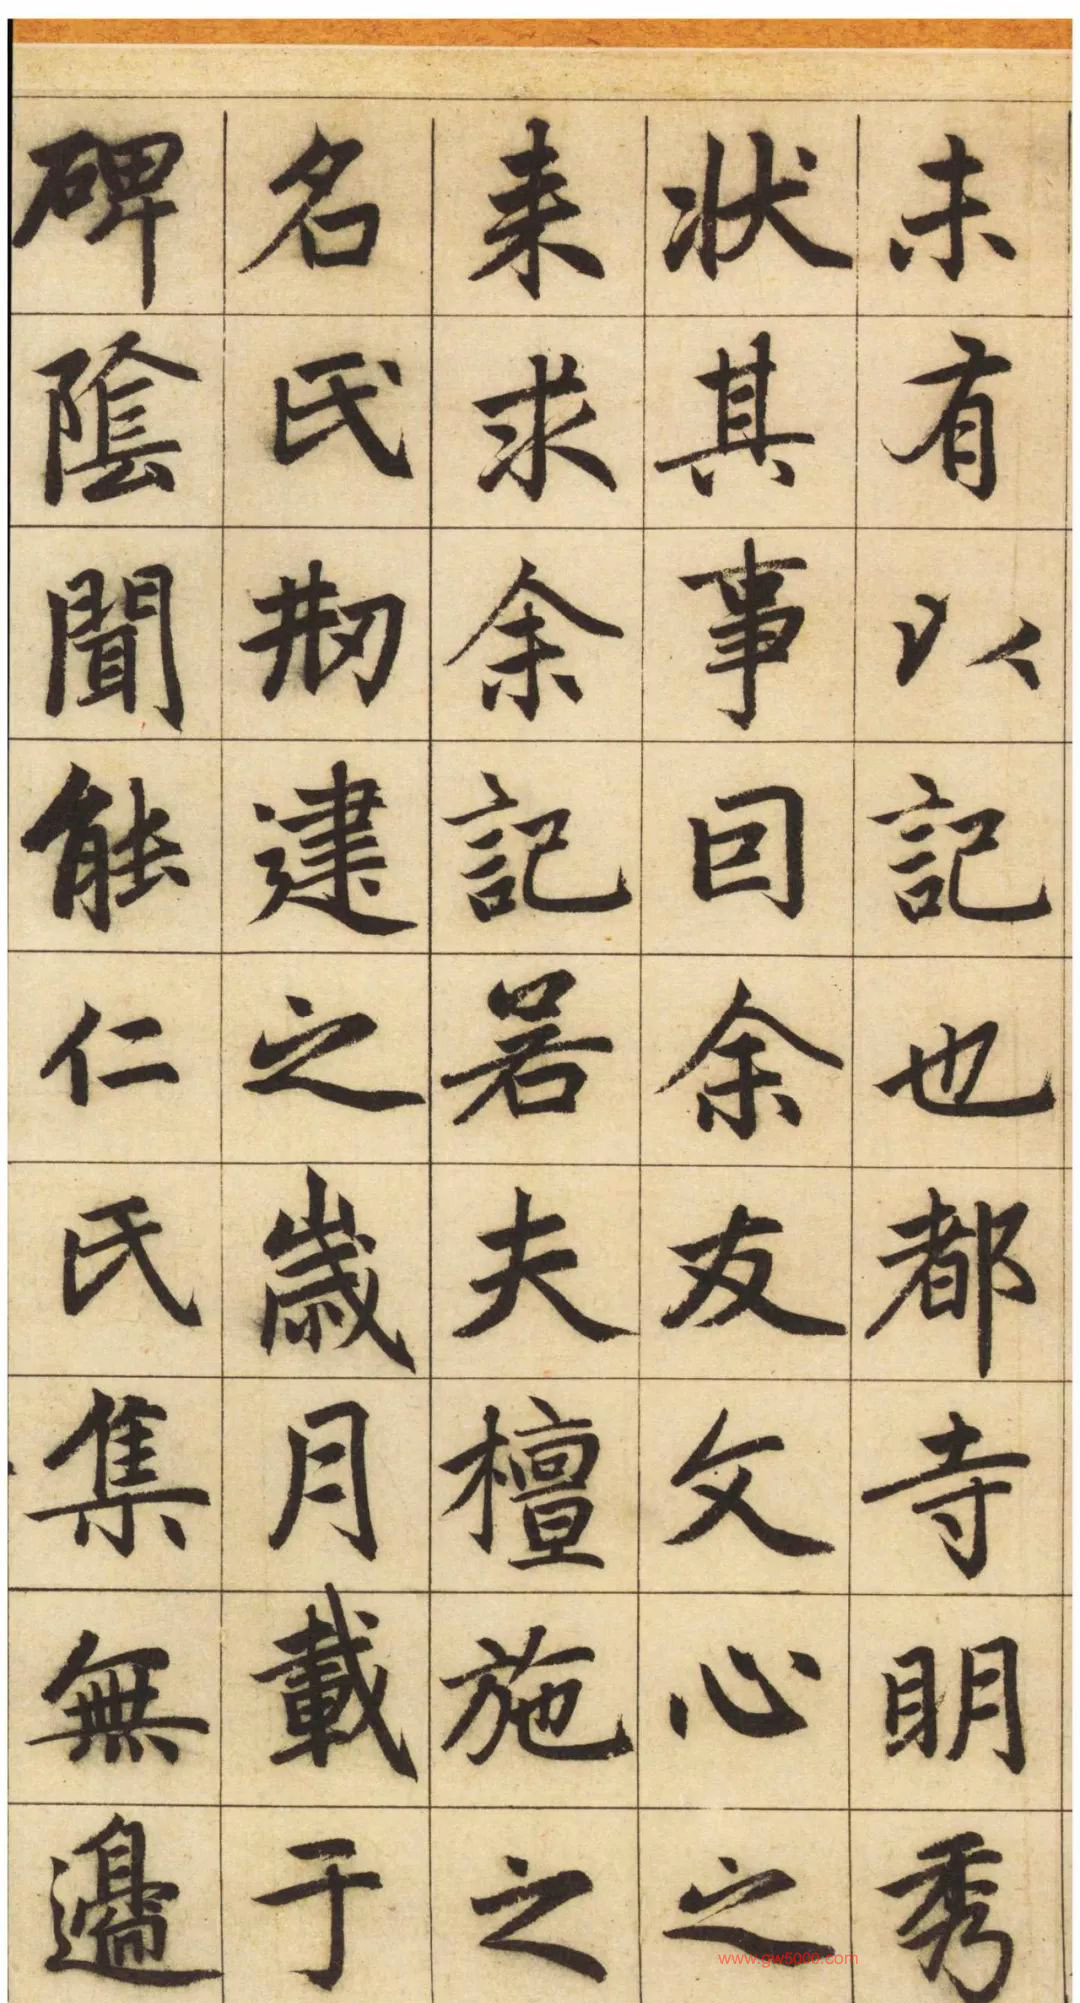 未有以記也都寺明秀
状其事因余友文心之
来求余記若夫檀施之
名氏刱建之歲月載于
碑陰聞能仁氏集無邊
www.gw5000.com